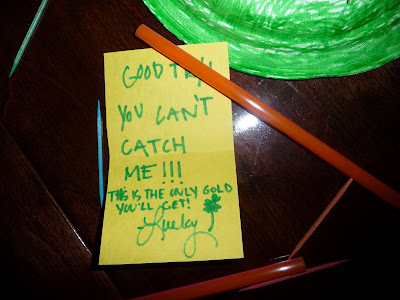 GOOD TRY
YOU CAN'T
CATCH
ME!!!
THIS IS THE ONLY GOLD
YOU'LL GET!
Lucky